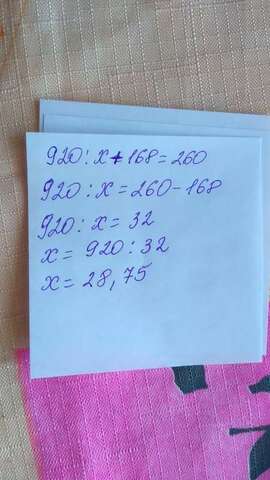 920 : x + 168 = 260
920 : x = 260 - 168
920 : x = 32
x = 920 : 32
x = 28,75